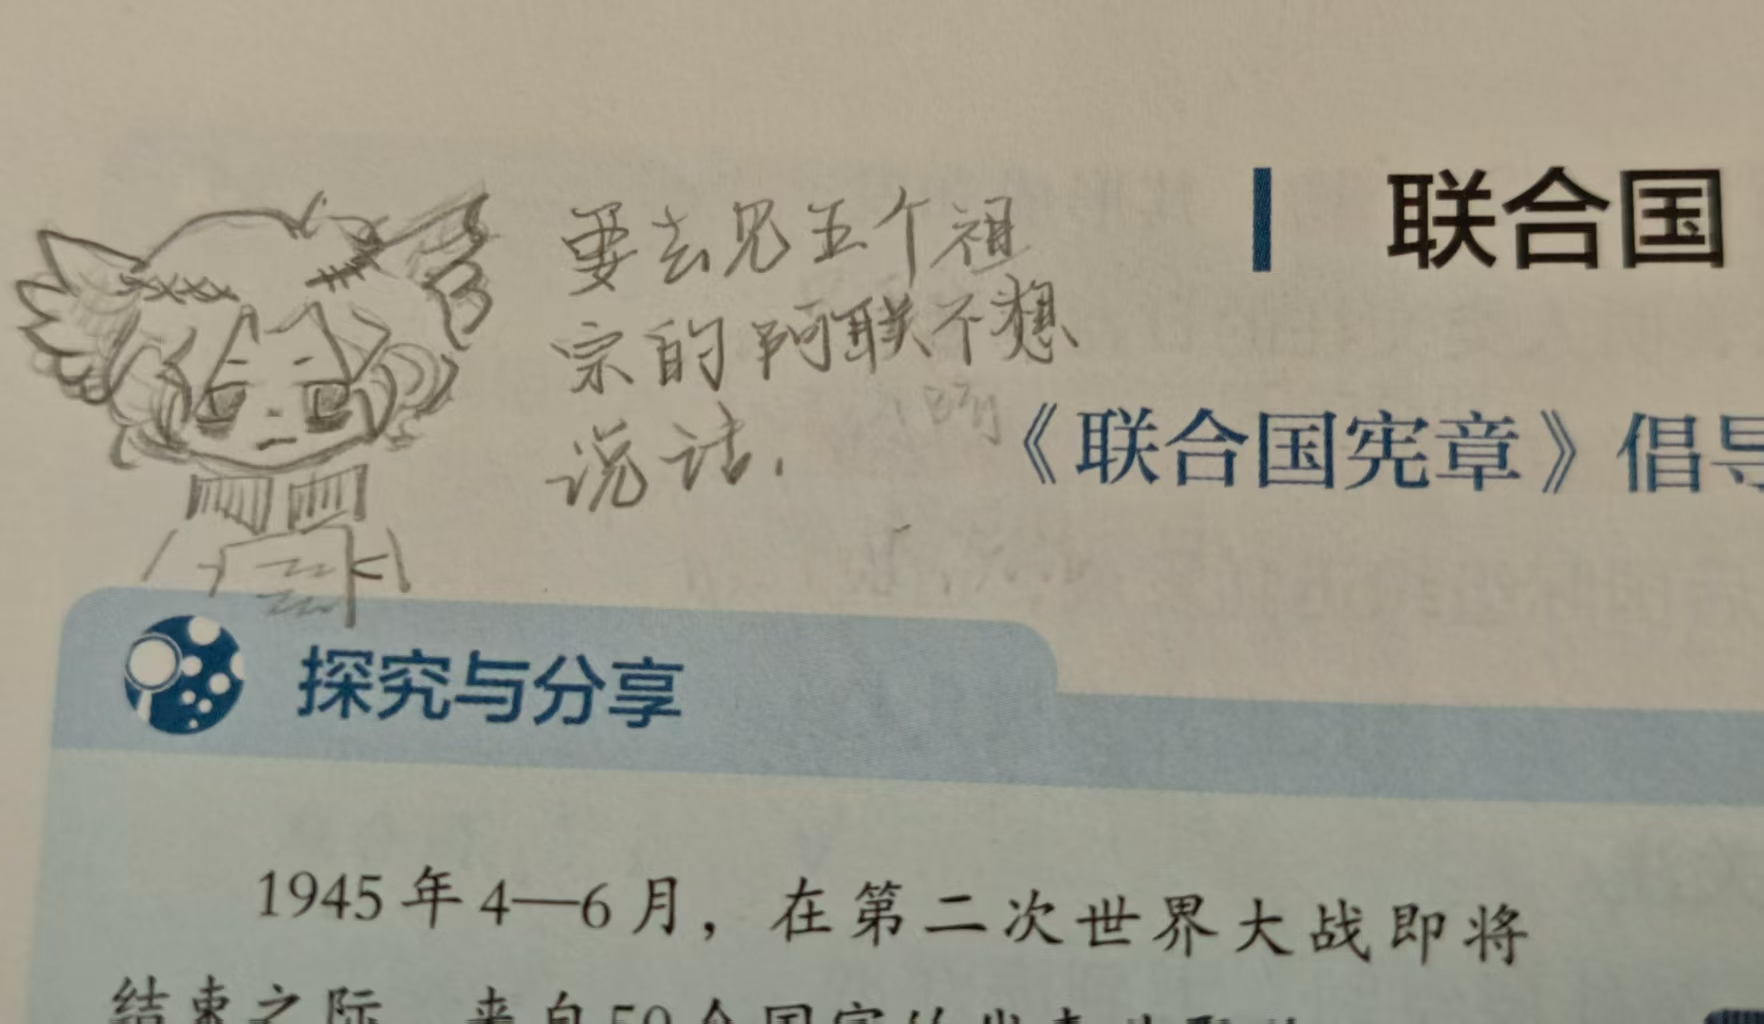 要去见五个祖
宗的阿联不想
说话.
联合国
《联合国宪章》倡导
探究与分享
1945年4—6月，在第二次世界大战即将
结束之际，来自50个国家的代表